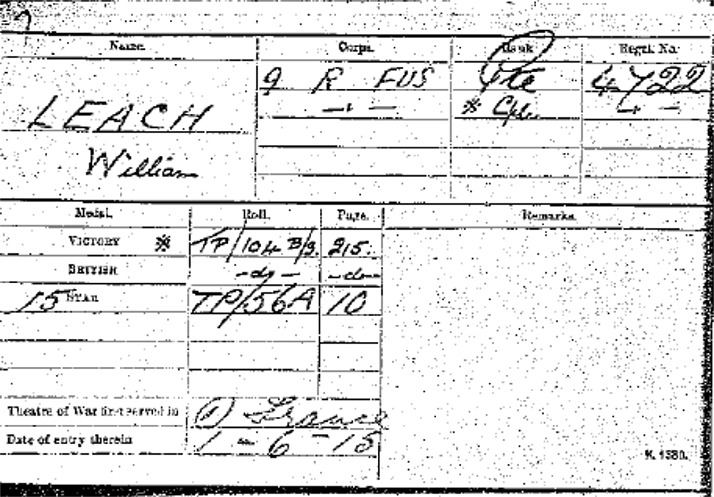 Name. Corps. Rank Regtl. No.
9 R FUS Pte 4722
LEACH -"- ※ Cpl. -"-
William
Medal. Roll. Page. Remarks.
VICTORY ※ TP/104 B/3. 215.
BRITISH -do- -do-
15 STAR TP/56A 10
Theatre of War first served in (1) France
Date of entry therein 1-6-15
K. 1380.